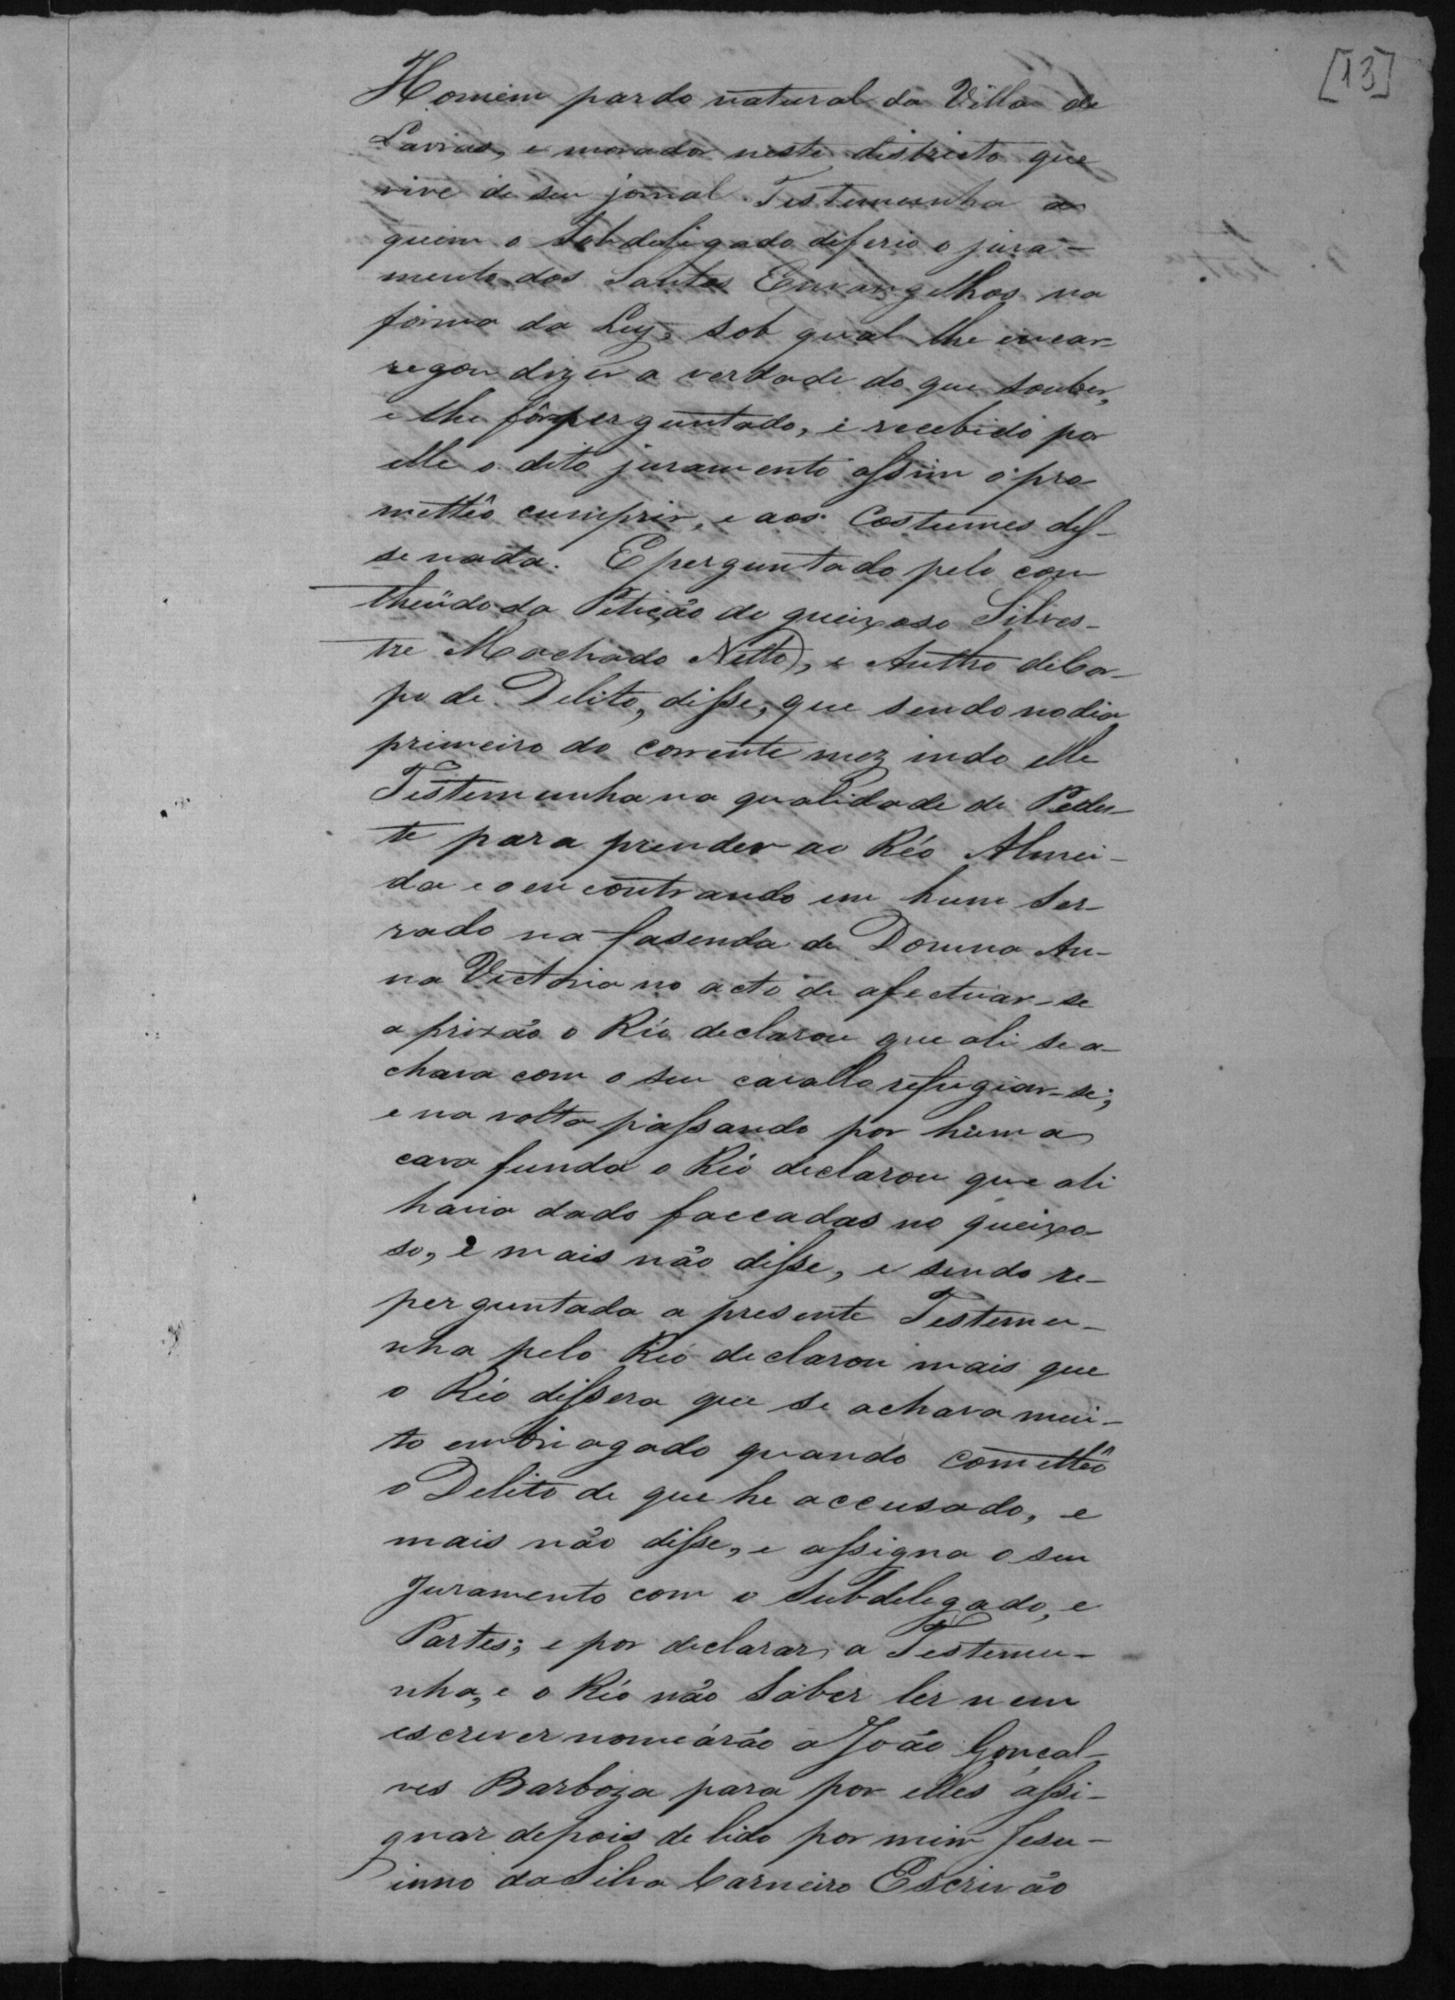 [13]
Homem pardo natural da Villa de
Lavras, e morador neste districto que
vive de seu jornal. Testemunha a
quem o Sobdeligado diferio o jura-
mento dos Santos Envangelhos na
forma da Ley, sob qual lhe encar-
regou dizer a verdade do que souber,
e lhe fôr perguntado, e recebido por
elle o dito juramento assim o pro
mettêo cumprir, e aos Costumes dis-
se nada. E perguntado pelo con
theüdo da Petição do queixoso Silves-
tre Machado Netto, e Autho de Cor-
po de Delito, disse, que sendo no dia
primeiro do corrente mez indo elle
Testemunha na qualidade de Pedes-
te para prender ao Réo Almei-
da e o encontrando em hum Ser-
rado na fasenda de Donna An-
na Victoria no acto de afectuar-se
a prizão o Réo declarou que ali se a-
chava com o seu cavallo refugiar-se;
e na volta passando por huma
cava funda o Réo declarou que ali
havia dado faccadas no queixo-
so, e mais não disse, e sendo re-
perguntada a presente Testemu-
nha pelo Réo declarou mais que
o Réo dissera que se achava mui-
to embriagado quando comettêo
o Delito de que he accusado, e
mais não disse, e assigna o seu
Juramento com o Subdelegado, e
Partes; e por declarar a Testemu-
nha, e o Réo não Saber ler nem
escrever nomeárão a João Gonçal-
ves Barboza para por elles assi-
gnar depois de lido por mim Jesu-
inno da Silva Carneiro Escrivão